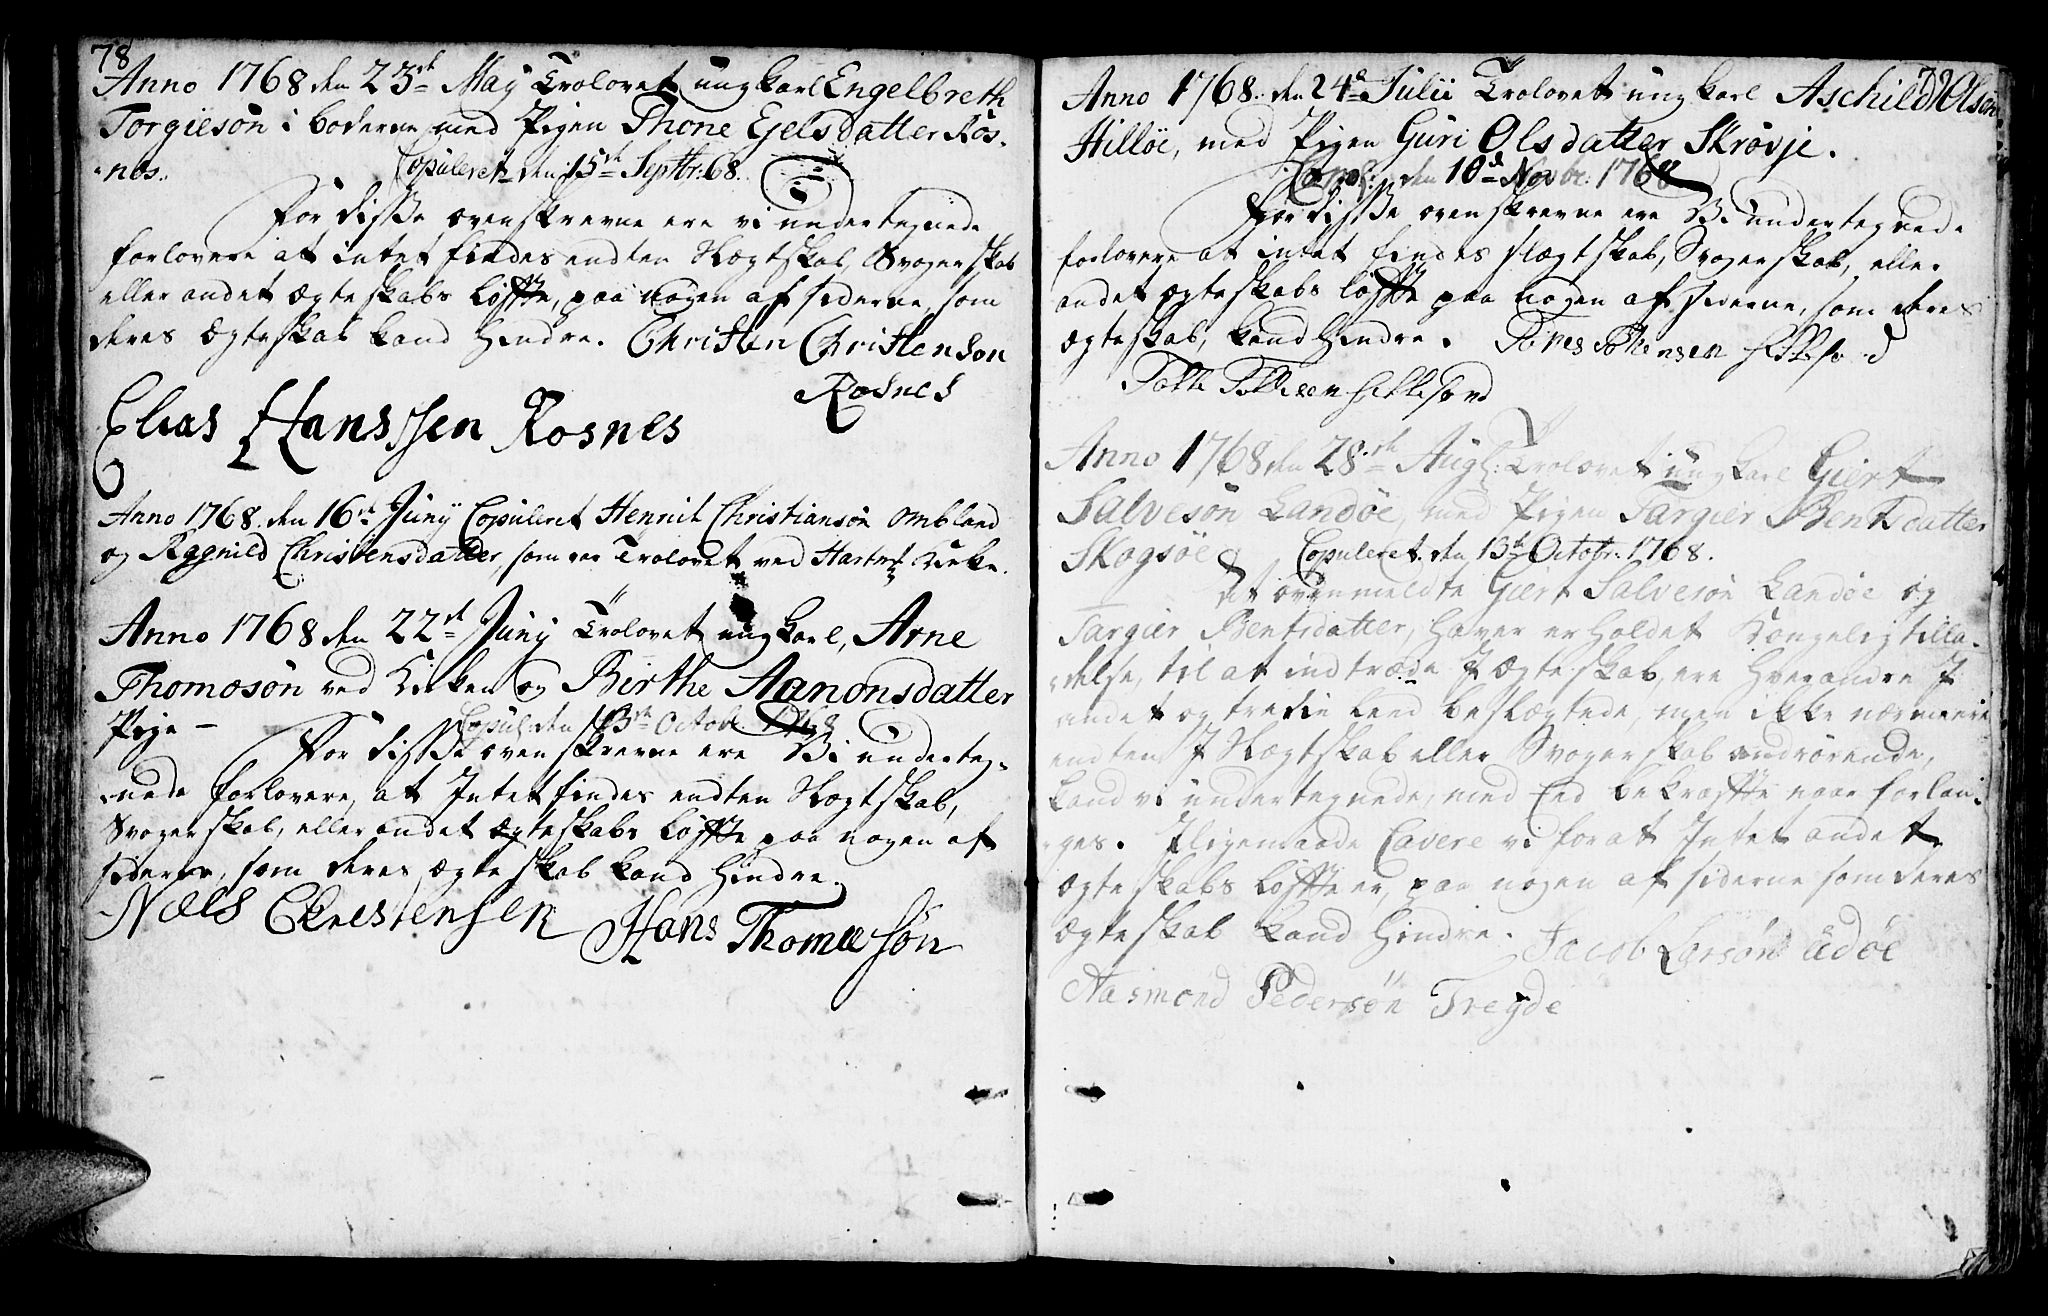 78
Anno 1768 den 23de May Trolovet ungkarl Engelbreth
Torgiesøn i boderne med Pigen Thone Ejelsdatter Ros-
-nes.
Copuleret den 15de Septbr: 68.
For disse ovenskrevne ere vi undertegnede
forlovere at intet findes endten Slegtskab, Svogerskab
eller andet ægteskabs løffte, paa nogen af siderne, som
deres Ægteskab kand hindre. Christen Christenson
Rosnes
Elias Hanssen Rosnes
Anno 1768. den 16de Juny Copuleret Henrik Christiansøn ombland
og Ragnild Christensdatter, som var Trolovet ved Hartm: Kirke.
Anno 1768 den 22de Juny Trolovet ungkarl, Arne
Thomosøn ved Kirken og Birthe Aanonsdatter
Pige -
Copul: den 13de Octobr. 1768
For disse ovenskrevne ere Vi underteg-
nede forlovere, at Intet findes endten Slegtskab,
Svogerskab, eller andet ægteskabs løffte paa nogen af
siderne, som deres ægteskab kand hindre.
Niels Chrestensen Hans Thomæsøn
79
Anno 1768. den 24de Julii Trolovet ungkarl Aschild Olsøn
Hilløe, med Pigen Guri Olsdatter Skrøvje.
Copul: den 10de Novbr. 1768
For disse ovenskrevne ere Vi undertegnede
forlovere at intet findes slegtskab, Svogerskab, eller
andet ægteskabs løffte paa nogen af siderne, som deres
ægteskab, kand hindre.
Anno 1768 den 28de Aug: Trolovet ungkarl Giert
Salvesøn Landøe med Pigen Targier Bentsdatter
Skogsøe
Copuleret den 13de Octobr. 1768.
At ovenmeldte Giert Salvesøn Landøe og
Targier Bentsdatter, haver erholdet Kongelig tilla-
delse, til at indtræde I Ægteskab, ere hverandre I
andet og tredie Leed beslegtede, men ikke nærmere
endten I Slegtskab eller Svogerskab andrørende,
kand vi undertegnede, med Eed bekræffte naar forlan-
ges. Iligemaade Cavere vi for at Intet andet
ægteskabs løffte er, paa nogen af siderne som deres
Ægteskab kand hindre. Jacob Larsøn Udøe
Aasmond Pedersøn Tregde